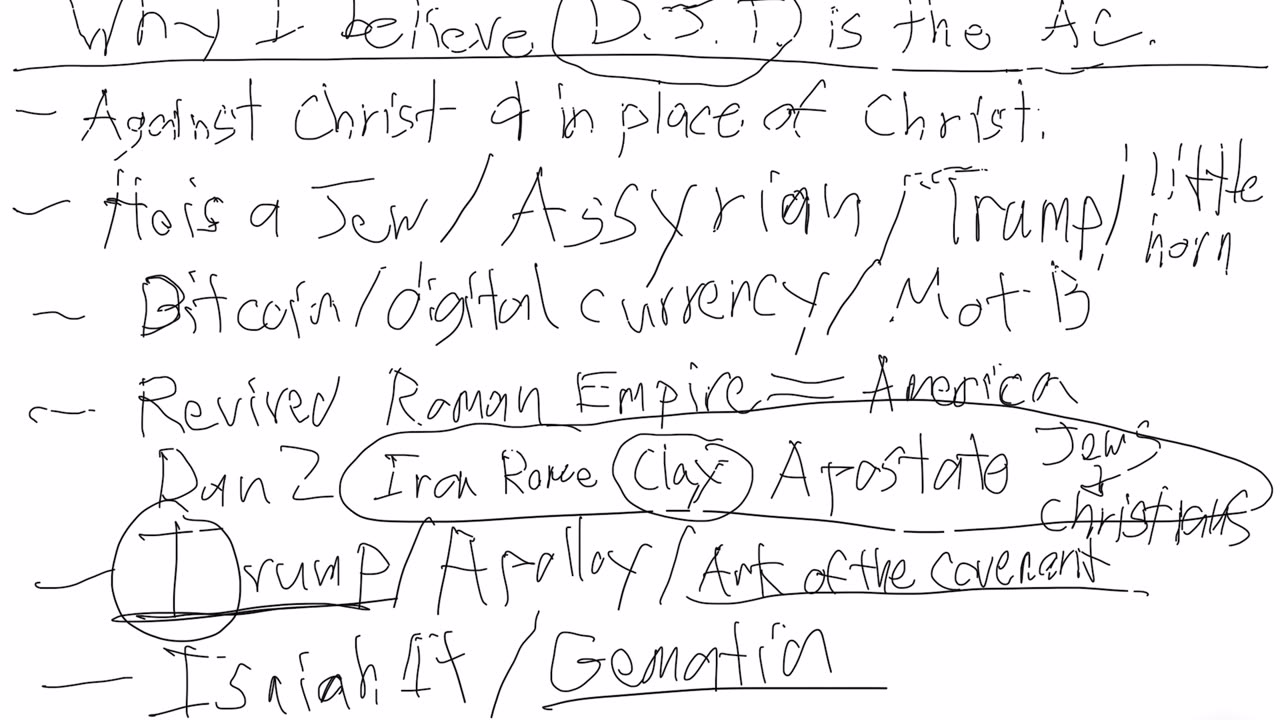 Why I believe D.J.T. is the AC.
- Against Christ & in place of Christ.
- He is a Jew / Assyrian / Trump / little horn
- Bitcoin / digital currency / Mot B
- Revived Roman Empire = America
Dan 2 Iron Rome Clay Apostate Jews & Christians
- Trump / Apolloy / Ark of the covenant
- Isaiah 14 / Gematria